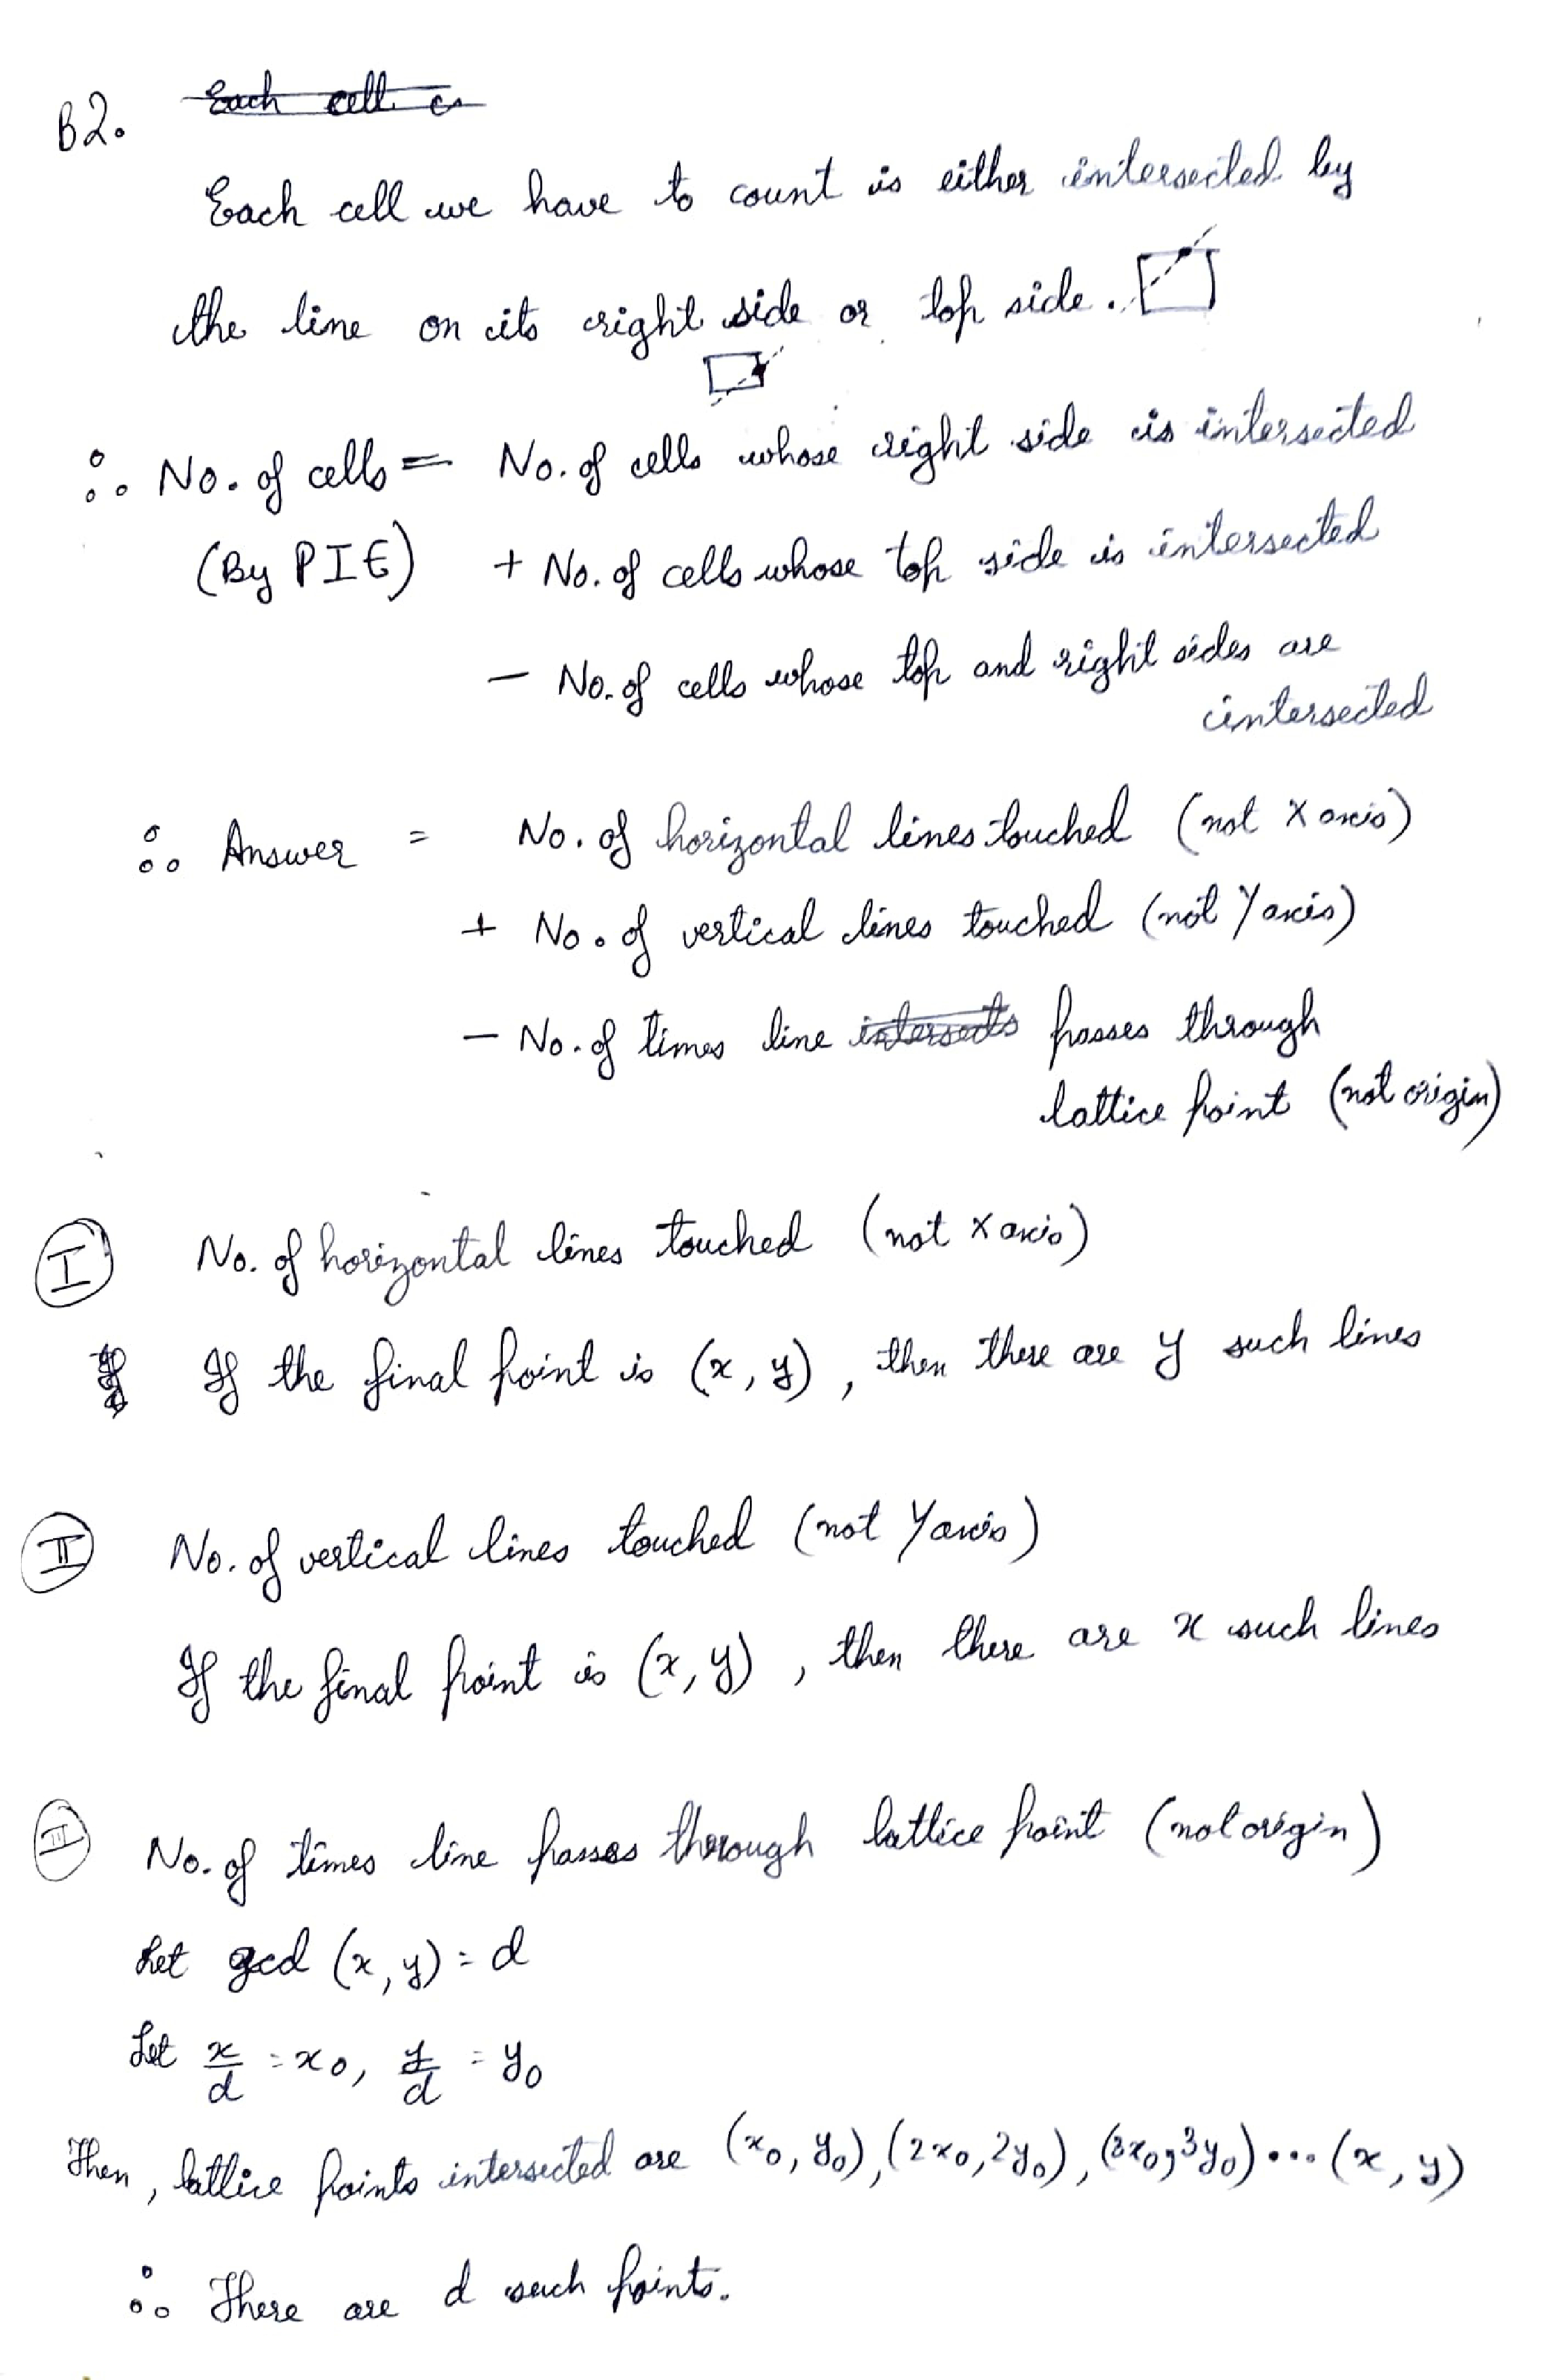 B2.
Each cell we have to count is either intersected by
the line on its right side or top side.
∴ No. of cells = No. of cells whose right side is intersected
(By PIE) + No. of cells whose top side is intersected
− No. of cells whose top and right sides are
intersected
∴ Answer = No. of horizontal lines touched (not X axis)
+ No. of vertical lines touched (not Y axis)
− No. of times line passes through
lattice point (not origin)
I No. of horizontal lines touched (not X axis)
If the final point is (x, y), then there are y such lines
II No. of vertical lines touched (not Y axis)
If the final point is (x, y), then there are x such lines
III No. of times line passes through lattice point (not origin)
Let gcd (x, y) = d
Let x/d = x₀, y/d = y₀
Then, lattice points intersected are (x₀, y₀), (2x₀, 2y₀), (3x₀, 3y₀) ... (x, y)
∴ There are d such points.